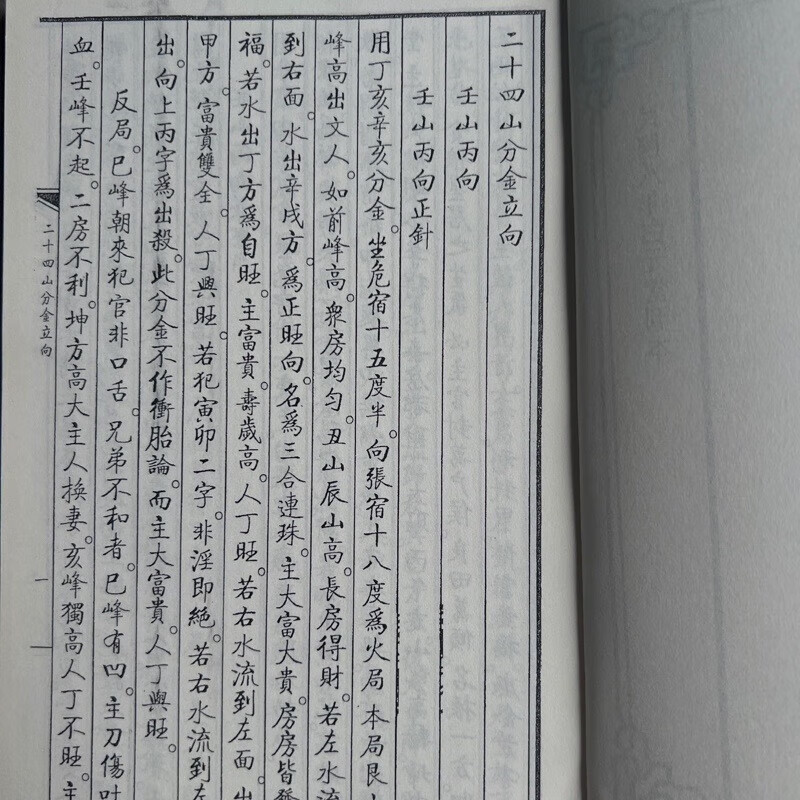 二十四山分金立向
壬山丙向
壬山丙向正針
用丁亥辛亥分金。坐危宿十五度半。向張宿十八度為火局 本局艮
峰高出文人。如前峰高。衆房均勻。丑山辰山高。長房得財。若左水流
到右面。水出辛戌方。為正旺向。名為三合連珠。主大富大貴。房房皆發
福。若水出丁方為自旺。主富貴。壽歲高。人丁旺。若右水流到左面。出
甲方。富貴雙全。人丁興旺。若犯寅卯二字。非淫即絕。若右水流到左
出。向上丙字為出殺。此分金不作衝胎論。而主大富貴。人丁興旺。
反局。巳峰朝來犯官非口舌。兄弟不和者。巳峰有凹。主刀傷吐
血。壬峰不起。二房不利。坤方高大主人換妻。亥峰獨高人丁不旺。主
二十四山分金立向
一